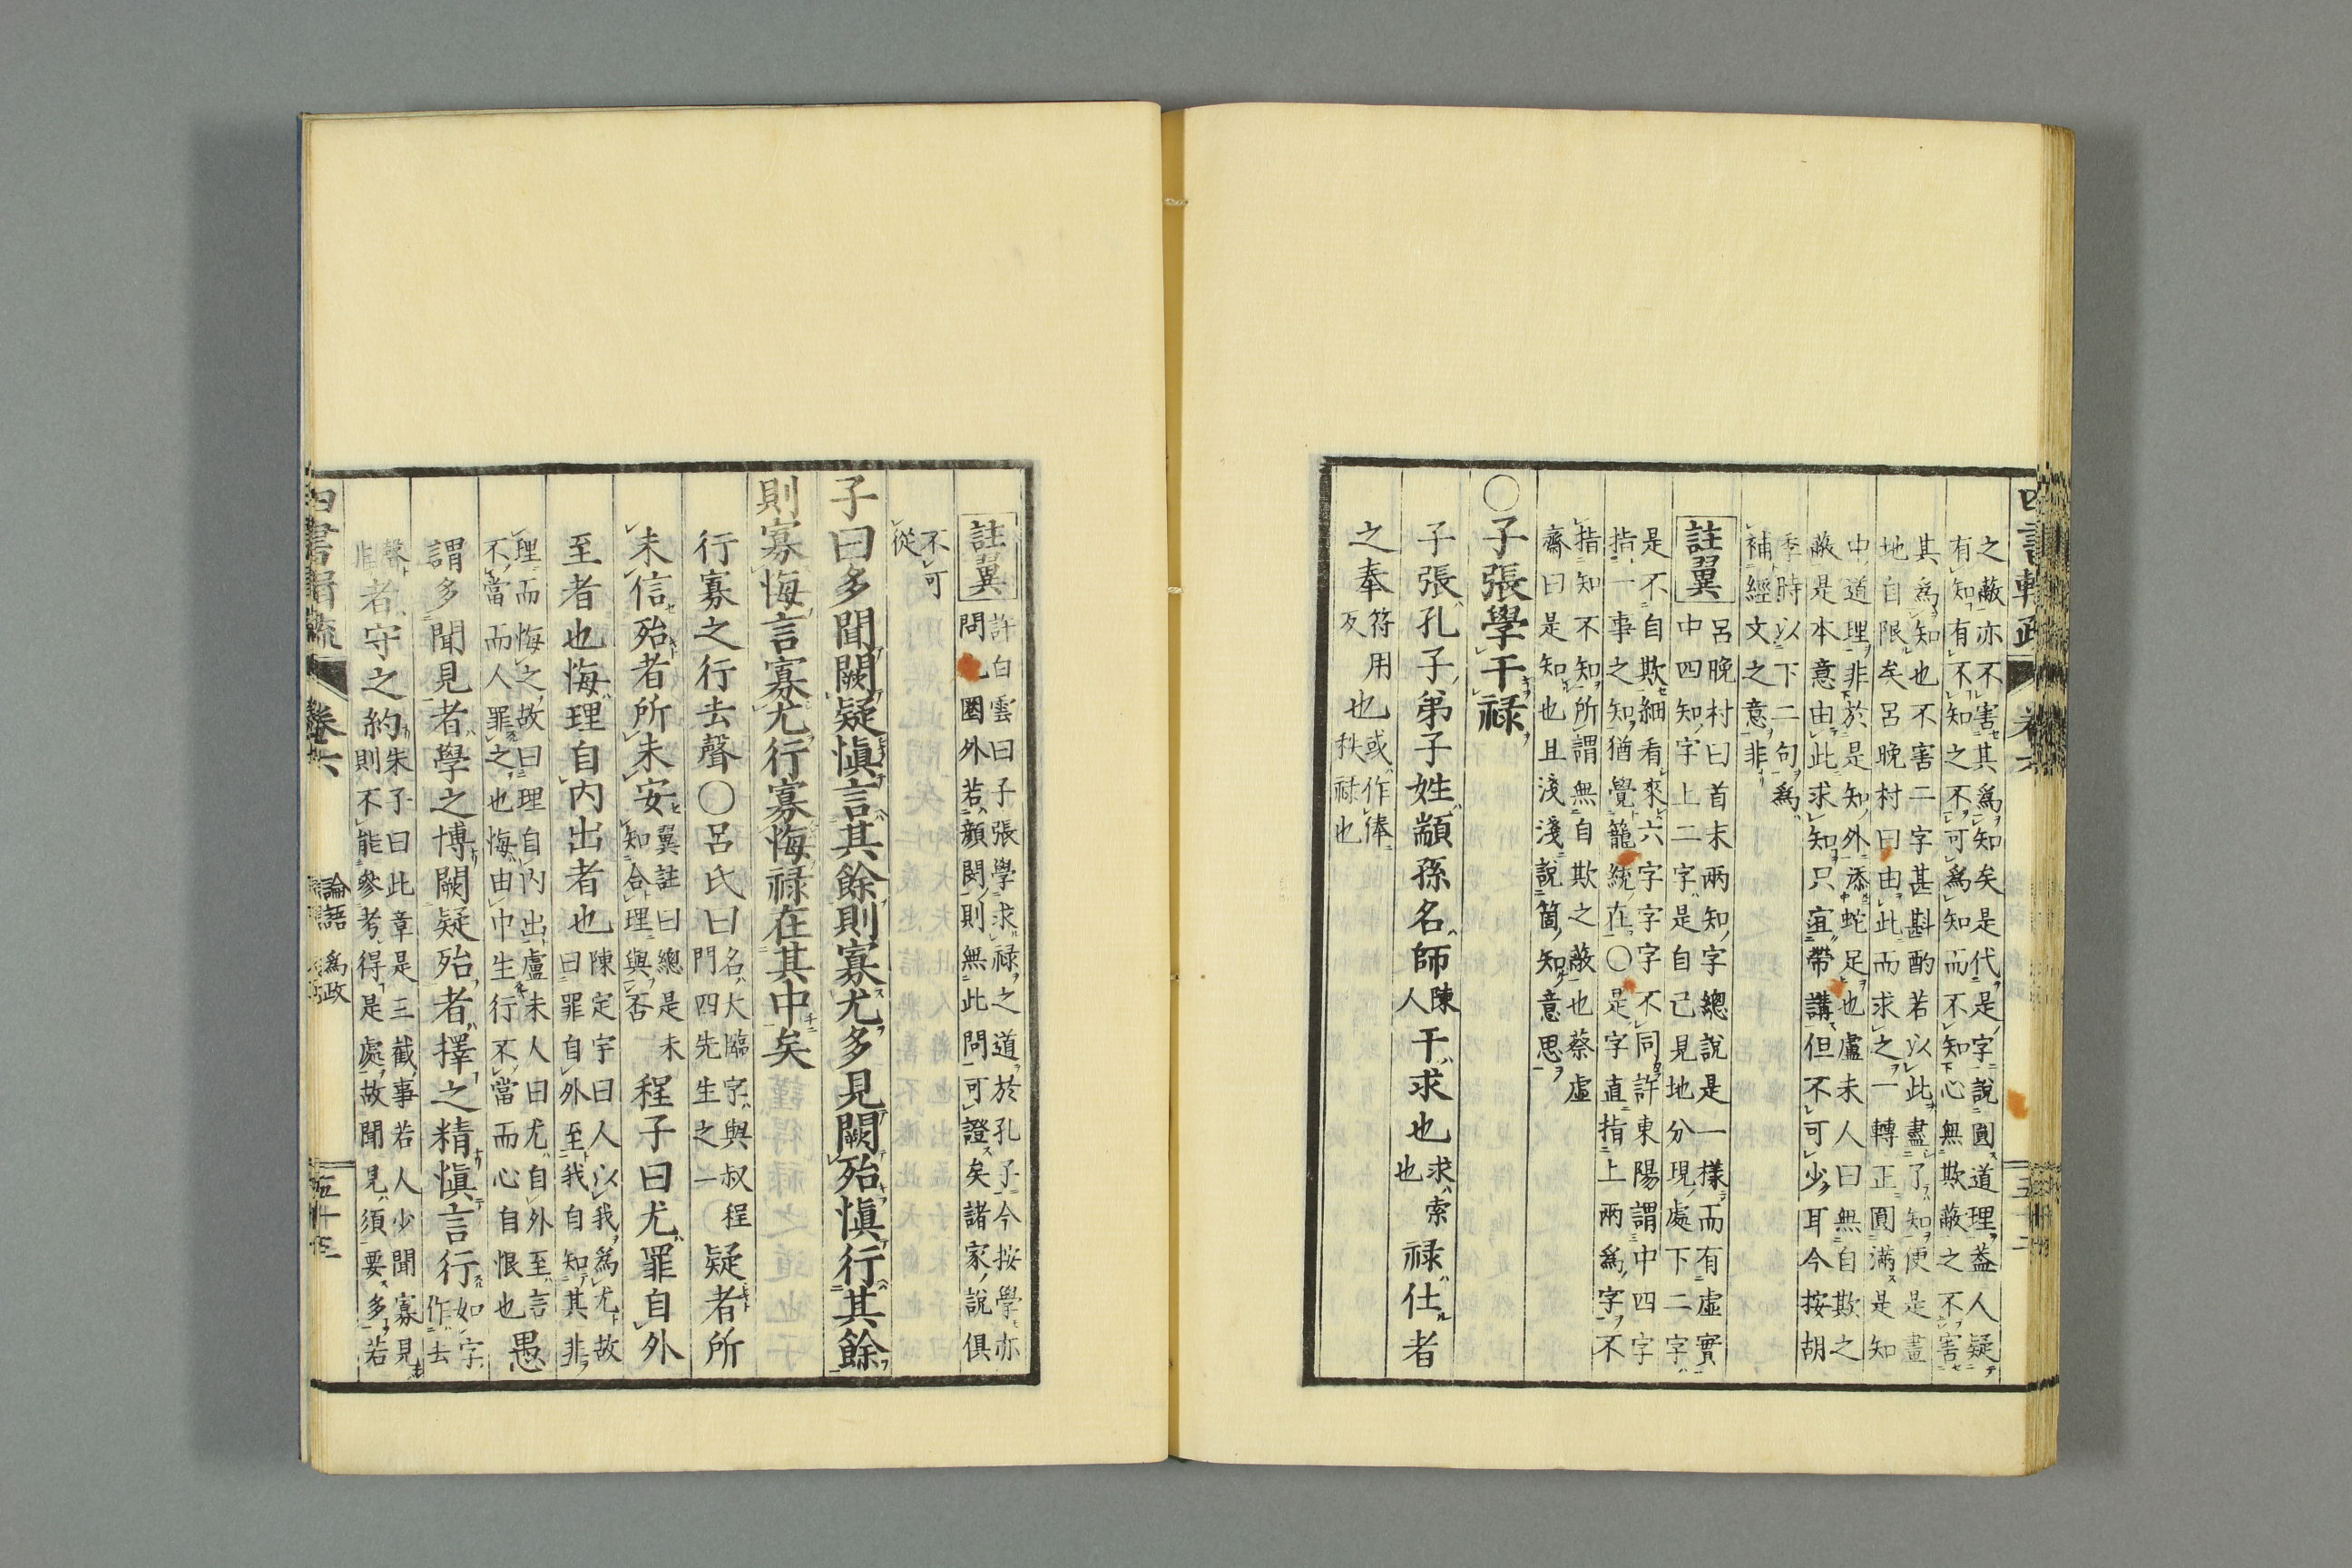 之蔽亦不害其爲知矣是代是字說圓道理葢人疑
有知有不知之不可爲知而不知心無欺蔽之不害
其爲知也不害二字甚斟酌若以此盡了知便是畫
地自限矣呂晚村曰由此而求之一轉正圓滿是知
中道理非於是知外添蛇足也盧未人曰無自欺之
蔽是本意由此求知只宜帶講但不可少耳今按胡
季時以下二句爲
補經文之意非
註翼
呂晚村曰首末兩知字總說是一樣而有虛實
中四知字上二字是自己見地分現處下二字
是不自欺細看來六字字字不同許東陽謂中四字
指一事之知猶覺籠統在〇是字直指上兩爲字不
指知不知所謂無自欺之蔽也蔡虛
齋曰是知也且淺淺說箇知意思
〇子張學干祿
子張孔子弟子姓顓孫名師陳人干求也求索也祿仕者
之奉符用反也或作俸秩祿也
註翼
許白雲曰子張學求祿之道於孔子今按學亦
問也圈外若顏閔則無此問可證矣諸家說俱
不可
從
子曰多聞闕疑愼言其餘則寡尤多見闕殆愼行其餘
則寡悔言寡尤行寡悔祿在其中矣
行寡之行去聲〇呂氏曰名大臨字與叔程門四先生之一疑者所
未信殆者所未安翼註曰總是未知合理與否程子曰尤罪自外
至者也悔理自內出者也陳定宇曰人以我爲尤故曰罪自外至我自知其非
理而悔之故曰理自內出盧未人曰尤自外至言
不當而人罪之也悔由中生行不當而心自恨也愚
謂多聞見者學之博闕疑殆者擇之精愼言行如字作去
聲非者守之約朱子曰此章是三截事若人少聞寡見
則不能參考得是處故聞見須要多若
四書輯疏
卷六
論語
爲政
五十三